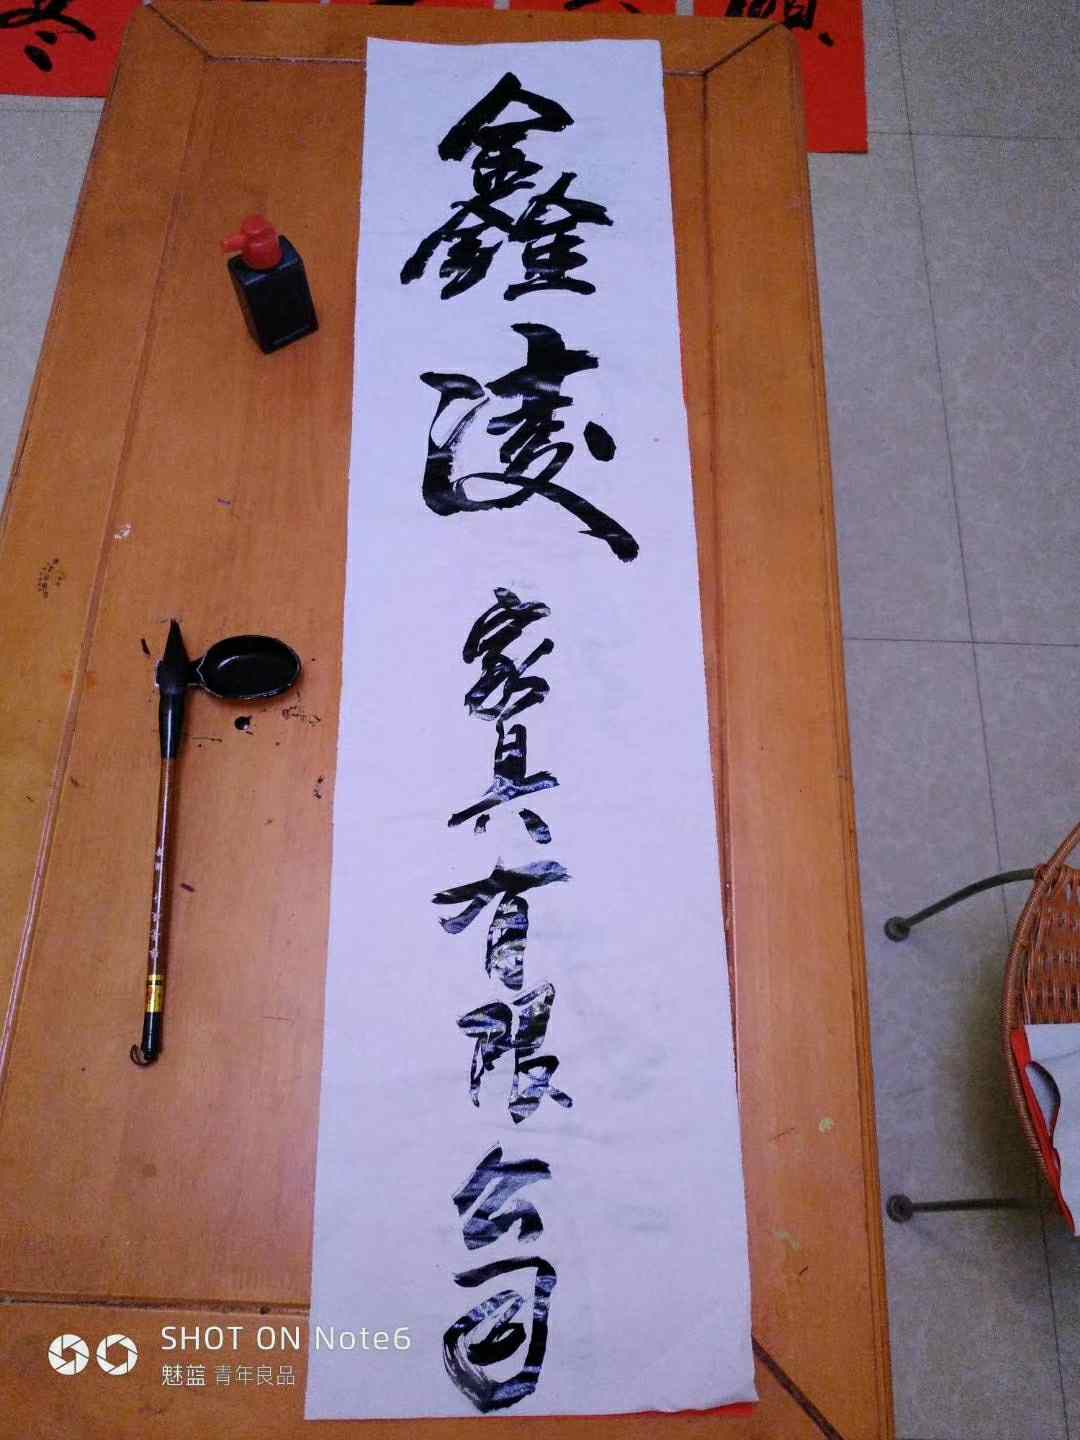 鑫凌家具有限公司
SHOT ON Note6
魅蓝 青年良品